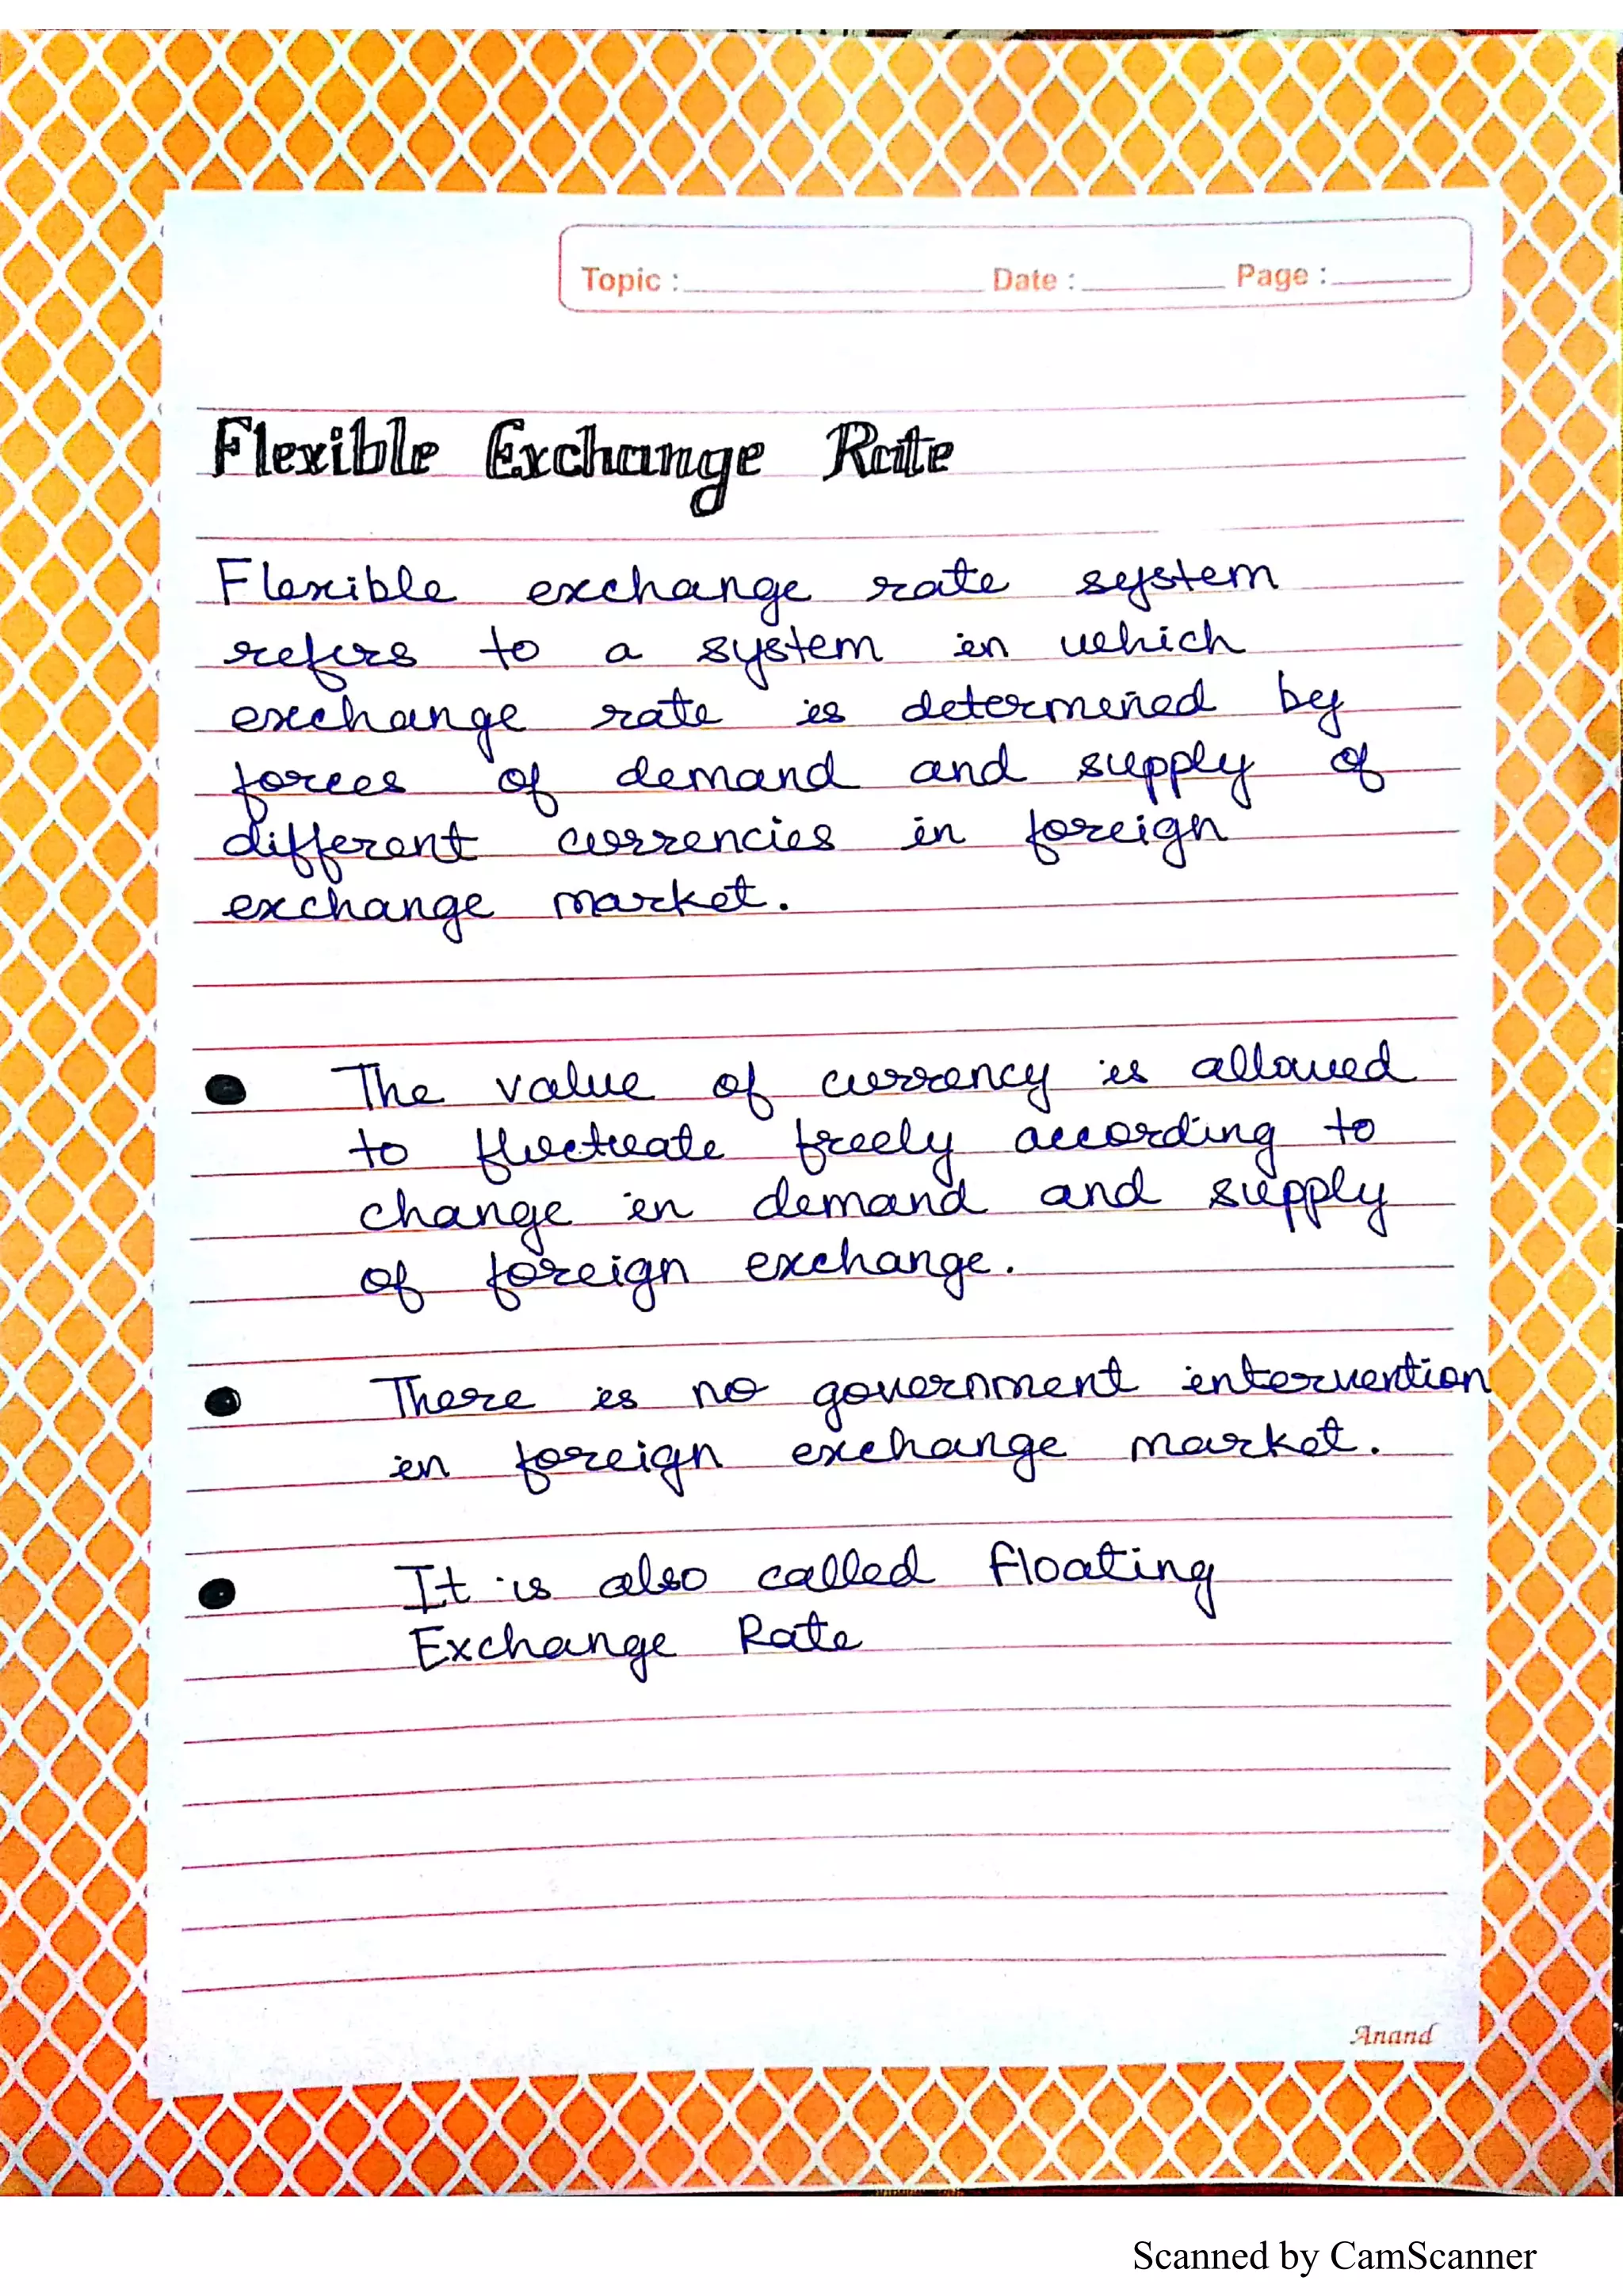 Topic : Date : Page :
Flexible Exchange Rate
Flexible exchange rate system
refers to a system in which
exchange rate is determined by
forces of demand and supply of
different currencies in foreign
exchange market.
● The value of currency is allowed
to fluctuate freely according to
change in demand and supply
of foreign exchange.
● There is no government intervention
in foreign exchange market.
● It is also called Floating
Exchange Rate
Anand
Scanned by CamScanner